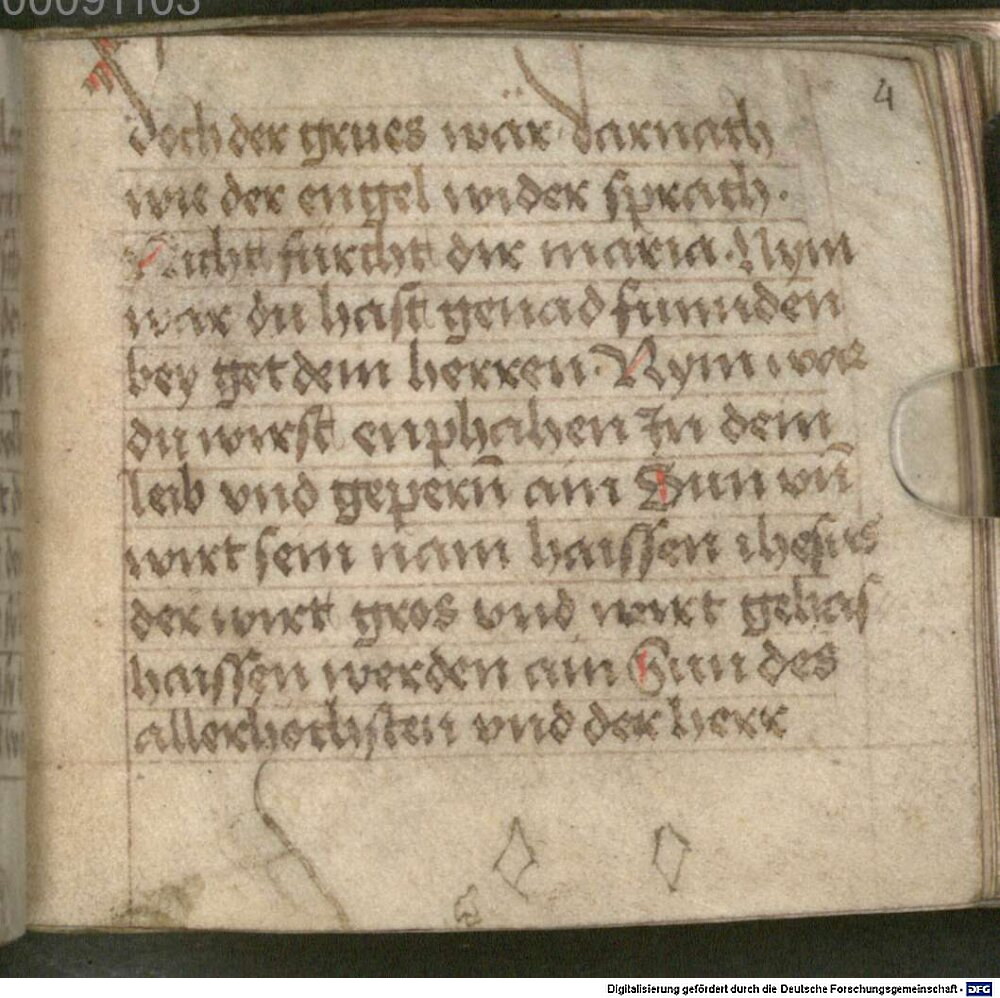 00091103
4
doch der grues wär darnach
wie der engel wider sprach.
Nicht fürcht dir maria. Nym
war du hast genad funnden
bey get dem herren. Nym war
du wirst enphahen In dem
leib vnd geperen̄ ain Sun vn̄
wirt sein nam haissen ihesus
der wirt gros vnd wirt
haissen werden ain Sun des
allerhochsten vnd der herr
Digitalisierung gefördert durch die Deutsche Forschungsgemeinschaft - DFG